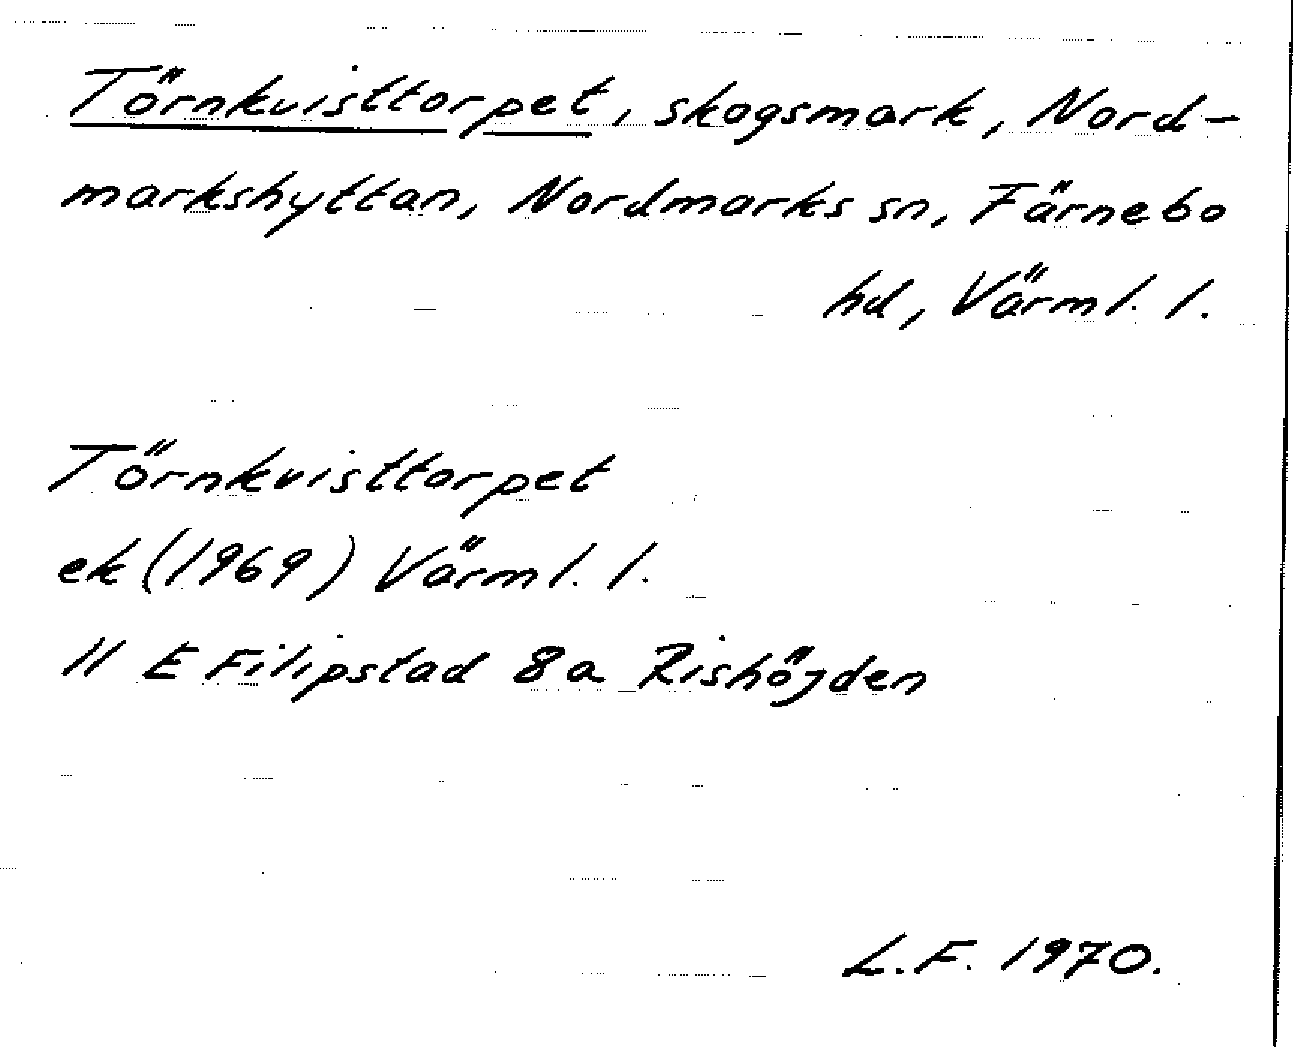 Törnkvisttorpet, skogsmark, Nord-
markshyttan, Nordmarks sn, Färnebo
hd, Värml. l.
Törnkvisttorpet
ek (1969) Värml. l.
11 E Filipstad 8a Rishöjden
L.F. 1970.